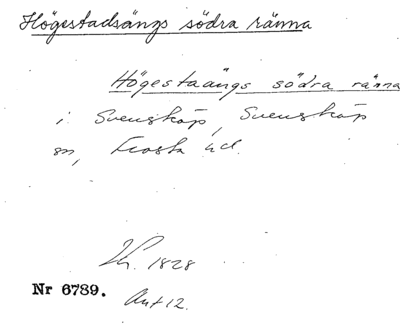 Högestadsängs södra ränna
Högestaängs södra ränna
i Svensköp, Svensköp
sn, Frosta hd.
Kh. 1828
Nr 6789.
Akt 12.